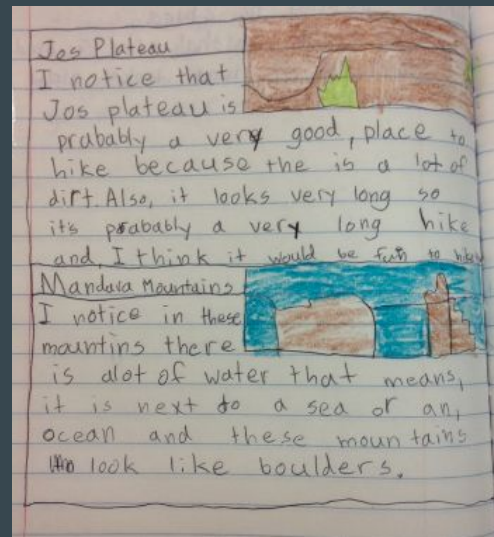 Jos Plateau
I notice that
Jos plateau is
prabably a very good, place to
hike because the is a lot of
dirt. Also, it looks very long so
it's prabably a very long hike
and, I think it would be fun to hike
Mandara Mountains
I notice in these
mauntins there
is alot of water that means,
it is next to a sea or an,
ocean and these mountains
look like boulders.